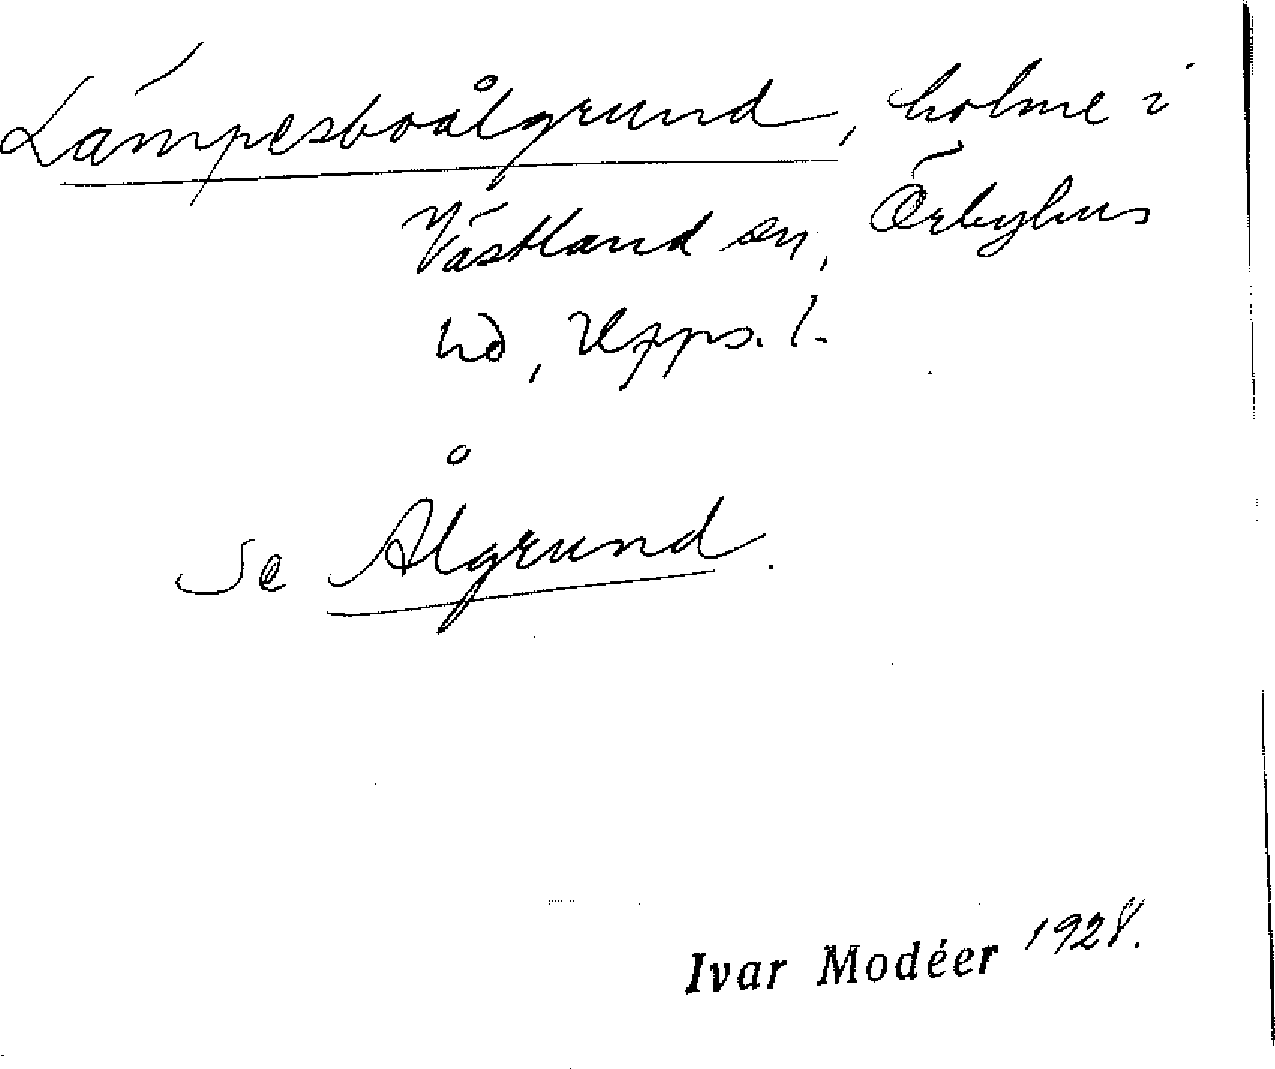 Lämpesboålgrund, holme i
Västland sn, Örbyhus
hd, Upps. l.
Se Ålgrund.
Ivar Modéer 1928.